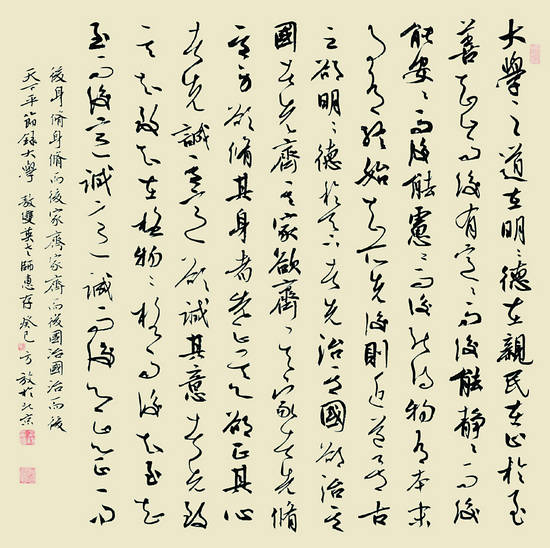 大學之道在明〻德在親民在止於至
善知止而後有定〻而後能靜〻而後
能安〻而後能慮〻而後能得物有本末
事有終始知所先後則近道矣古
之欲明〻德於天下者先治其國欲治其
國者先齊其家欲齊其家者先脩
其身欲脩其身者先正其心欲正其心
者先誠其意欲誠其意者先致
其知致知在格物〻格而後知至知
至而後意誠意誠而後心正心正而
後身脩身脩而後家齊家齊而後國治國治而後
天下平節錄大學 雙英老師惠存 癸巳 方放於北京